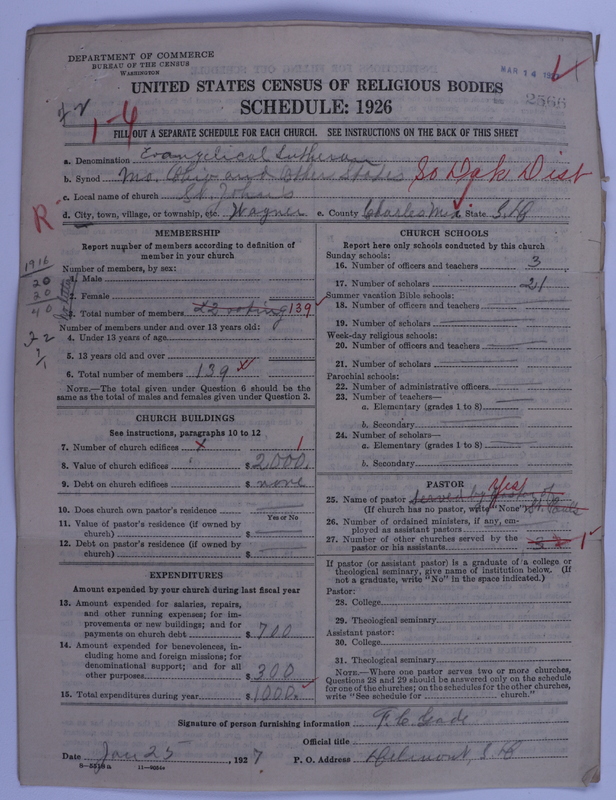 DEPARTMENT OF COMMERCE
BUREAU OF THE CENSUS
WASHINGTON
MAR 14
2566
UNITED STATES CENSUS OF RELIGIOUS BODIES
SCHEDULE: 1926
FILL OUT A SEPARATE SCHEDULE FOR EACH CHURCH. SEE INSTRUCTIONS ON THE BACK OF THIS SHEET
a. Denomination Evangelical Lutheran
b. Synod Mo. Ohio and Other States So Dak Dist
c. Local name of church St. John's
d. City, town, village, or township, etc. Wagner e. County Charles Mix State S.D.
R
MEMBERSHIP
Report number of members according to definition of member in your church
Number of members, by sex:
1916
20
20
40
1. Male
2. Female
3. Total number of members 22 voting 139
Number of members under and over 13 years old:
4. Under 13 years of age
5. 13 years old and over
6. Total number of members 139 x
NOTE.—The total given under Question 6 should be the
same as the total of males and females given under Question 3.
CHURCH BUILDINGS
See instructions, paragraphs 10 to 12
7. Number of church edifices x 1
8. Value of church edifices $ 2000.
9. Debt on church edifices $ none
10. Does church own pastor's residence
Yes or No
11. Value of pastor's residence (if owned by
church) $
12. Debt on pastor's residence (if owned by
church) $
EXPENDITURES
Amount expended by your church during last fiscal year
13. Amount expended for salaries, repairs,
and other running expenses; for im-
provements or new buildings; and for
payments on church debt $ 700
14. Amount expended for benevolences, in-
cluding home and foreign missions; for
denominational support; and for all
other purposes $ 300
15. Total expenditures during year $ 1000.
CHURCH SCHOOLS
Report here only schools conducted by this church
Sunday schools:
16. Number of officers and teachers 3
17. Number of scholars 21
Summer vacation Bible schools:
18. Number of officers and teachers
19. Number of scholars
Week-day religious schools:
20. Number of officers and teachers
21. Number of scholars
Parochial schools:
22. Number of administrative officers
23. Number of teachers—
a. Elementary (grades 1 to 8)
b. Secondary
24. Number of scholars—
a. Elementary (grades 1 to 8)
b. Secondary
PASTOR
Yes
25. Name of pastor served by pastor of
(If church has no pastor, write "None") St. Paul's
26. Number of ordained ministers, if any, em-
ployed as assistant pastors
27. Number of other churches served by the
pastor or his assistants 1
If pastor (or assistant pastor) is a graduate of a college or
theological seminary, give name of institution below. (If
not a graduate, write "No" in the space indicated.)
Pastor:
28. College
29. Theological seminary
Assistant pastor:
30. College
31. Theological seminary
NOTE.—Where one pastor serves two or more churches,
Questions 28 and 29 should be answered only on the schedule
for one of the churches; on the schedules for the other churches,
write "See schedule for church."
Signature of person furnishing information F. C. Gade
Official title
Date Jan 25, 1927 P. O. Address Delmont, S. D.
8—5519a 11—9054a